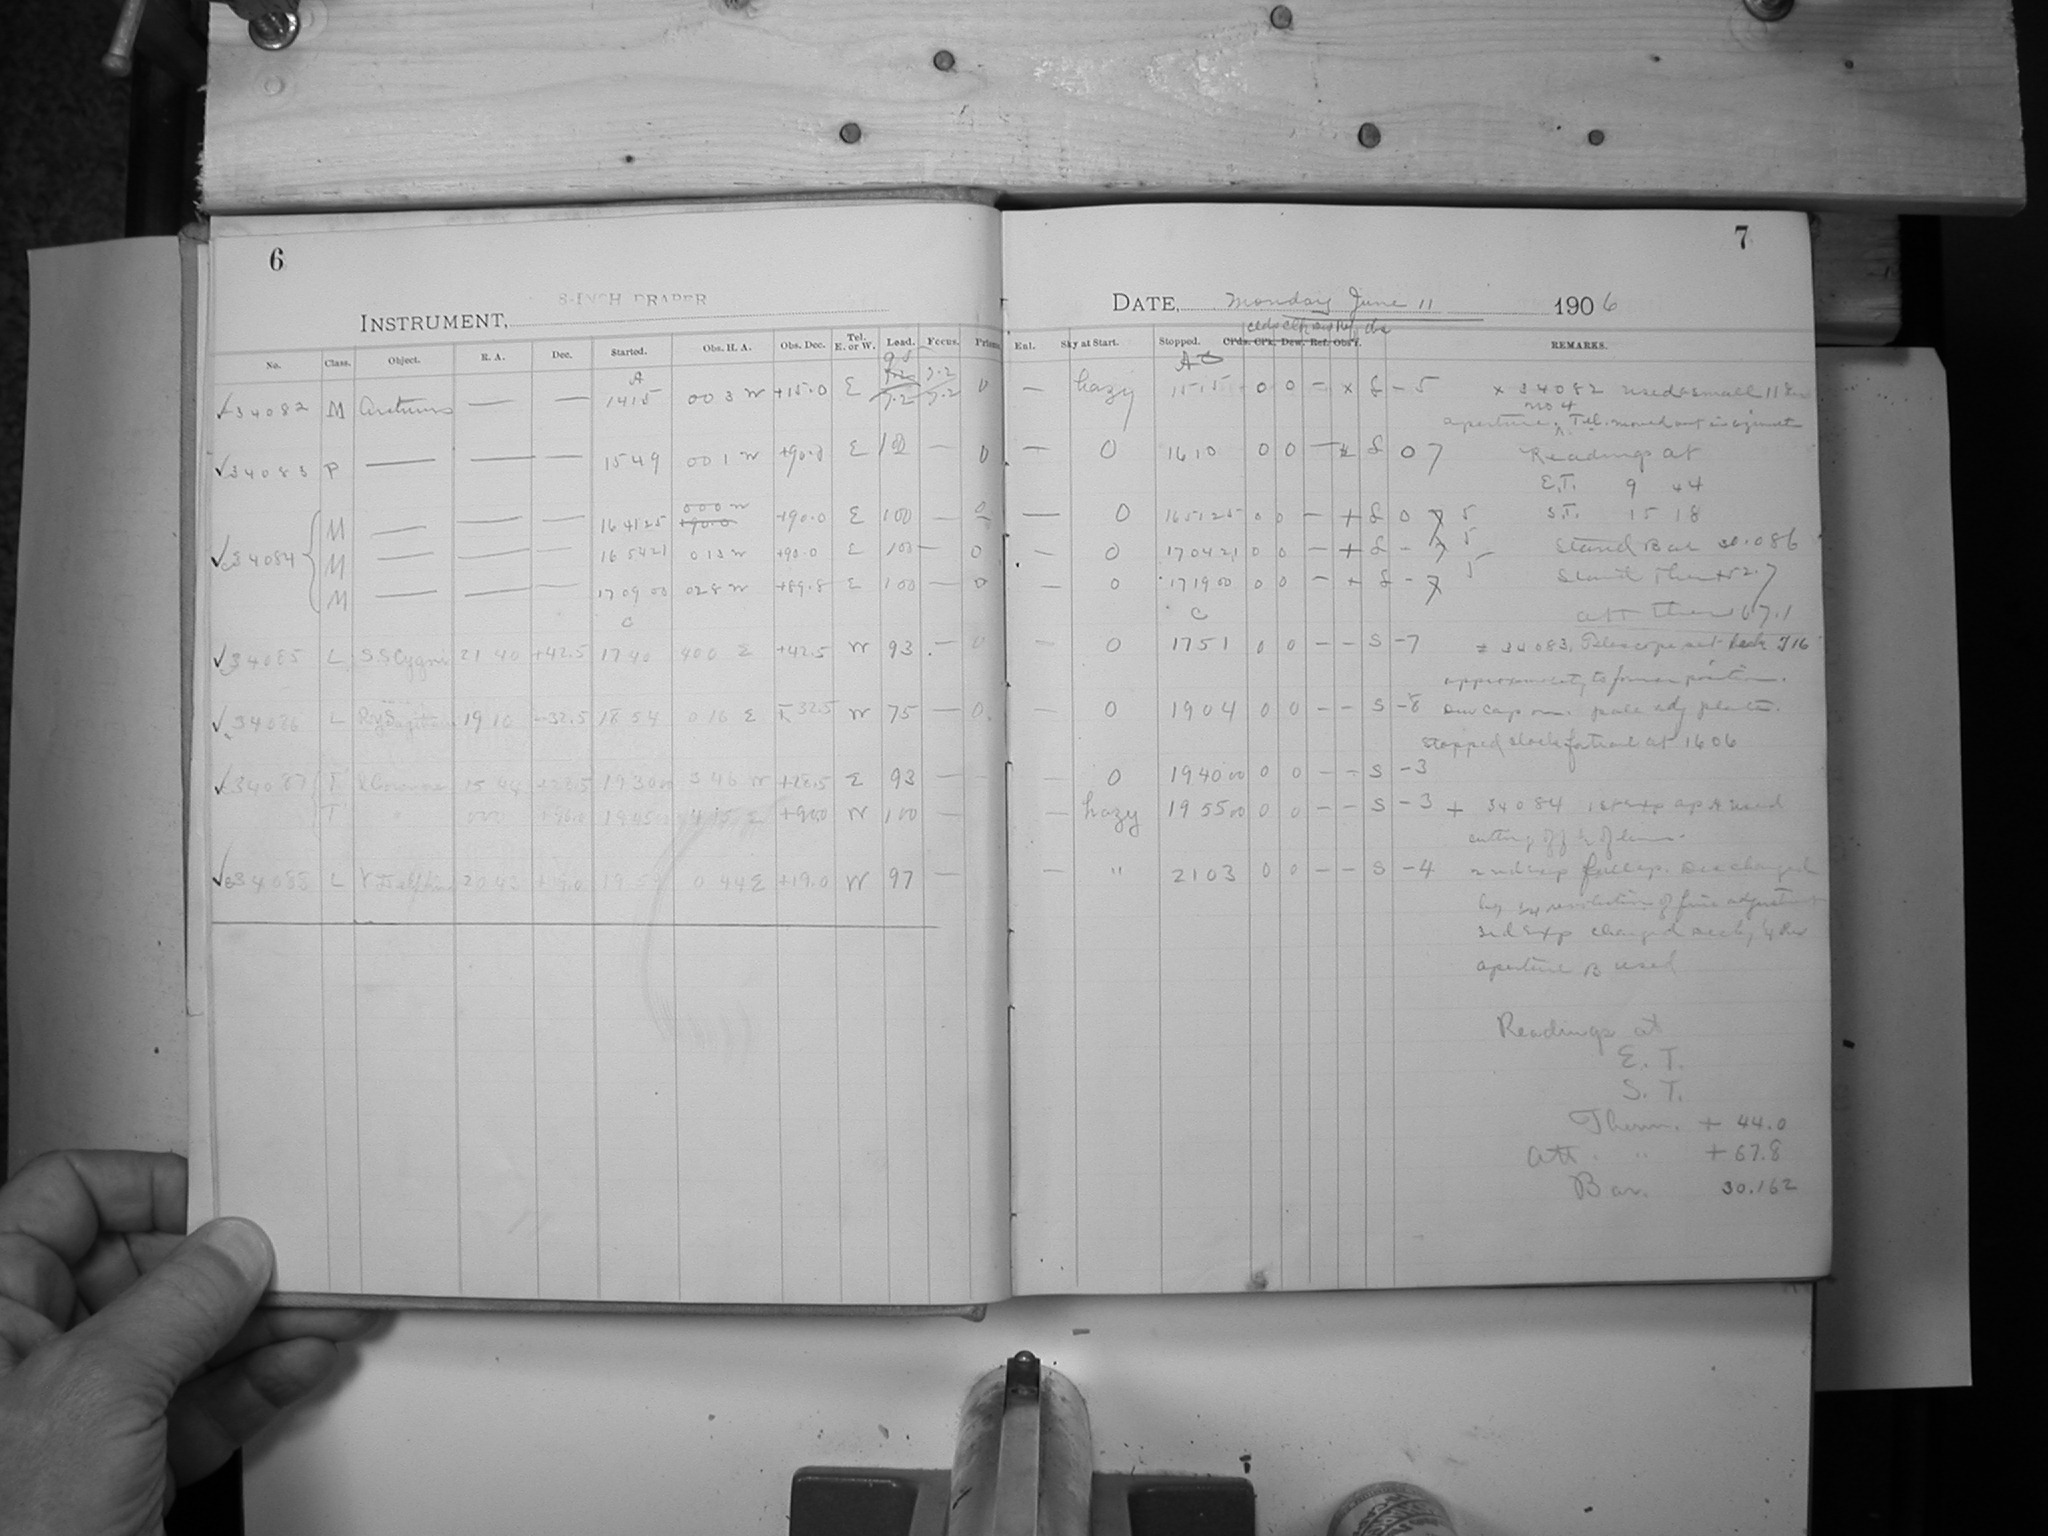 6
8-INCH DRAPER
INSTRUMENT,
No. Class. Object. R. A. Dec. Started. Obs. H. A. Obs. Dec. Tel. E. or W. Lead. Focus. Prism.
A
34082 M Arcturus — — 1415 003 W +15.0 E 7.2 7.2 0
34083 P — — — 1549 001 W +90.0 E 100 — 0
000 W
34084 M — — — 164125 +90.0 +90.0 E 100 — 0
M — — — 165421 013 W +90.0 E 100 — 0
M — — — 170900 028 W +89.8 E 100 — 0
C
34085 L SS Cygni 21 40 +42.5 1740 400 E +42.5 W 93 — 0
34086 L RY Sagittarii 19 10 -32.5 18 54 0 16 E 32.5 W 75 — 0
34087 T 15 44 +28.5 19 30 00 3 46 W +28.5 E 93 — —
T " +90.0 1945 415 E +90.0 W 100 —
34088 L V Delphini 20 43 +19.0 1959 0 44 E +19.0 W 97 —
7
DATE, Monday June 11 1906
Enl. Sky at Start. Stopped. Cl'ds. Cl'k. Dew. Ref. Obs'r. REMARKS.
— hazy 1515 0 0 – x £ – 5
— 0 1610 0 0 – £ 0 7
— 0 165125 0 0 – + £ 0 7 5
— 0 170421 0 0 – + £ – 7 5
— 0 171900 0 0 – + £ – 7 5
C
— 0 1751 0 0 – – S –7
— 0 1904 0 0 – – S –8
— 0 194000 0 0 – – S –3
— hazy 195500 0 0 – – S –3
— " 2103 0 0 – – S –4
x 34082 used small
no 4
aperture. Tel. moved out in
Readings at
E.T. 9 44
S.T. 15 18
Stand Bar 30.086
Stand Ther +52.7
att Ther 67.1
34083. Telescope set back
approximately to former position.
Dew cap on. pole adj plate.
stopped clock for trail at 1606
+ 34084 1st exp ap A used
cutting off ½ of lens.
2nd exp full ap. Dec changed
by revolution of fine adjustment
3rd Exp changed Dec by ¼ Rev
aperture B used
Readings at
E. T.
S. T.
Therm. + 44.0
Att. " + 67.8
Bar. 30.162